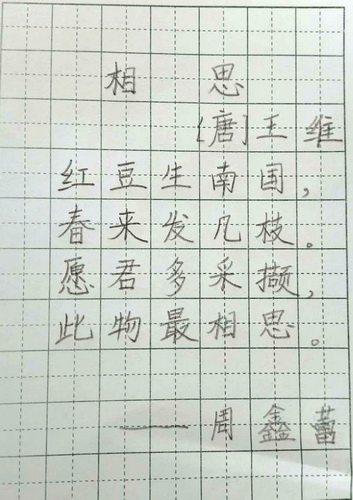 相思
[唐]王维
红豆生南国,
春来发几枝。
愿君多采撷,
此物最相思。
——周鑫蕾